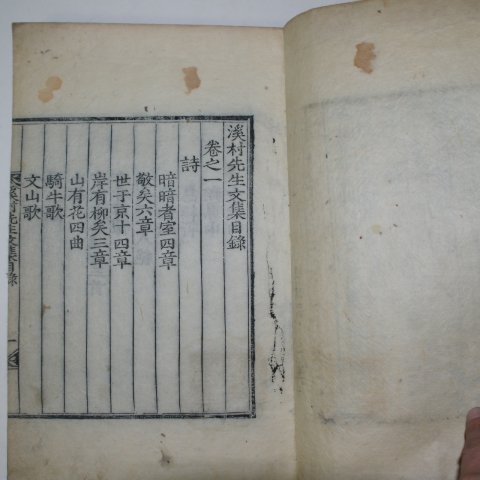 溪村先生文集目錄
卷之一
詩
暗暗者室四章
敬矣六章
世于京十四章
岸有柳矣三章
山有花四曲
騎牛歌
文山歌
溪村先生文集目錄